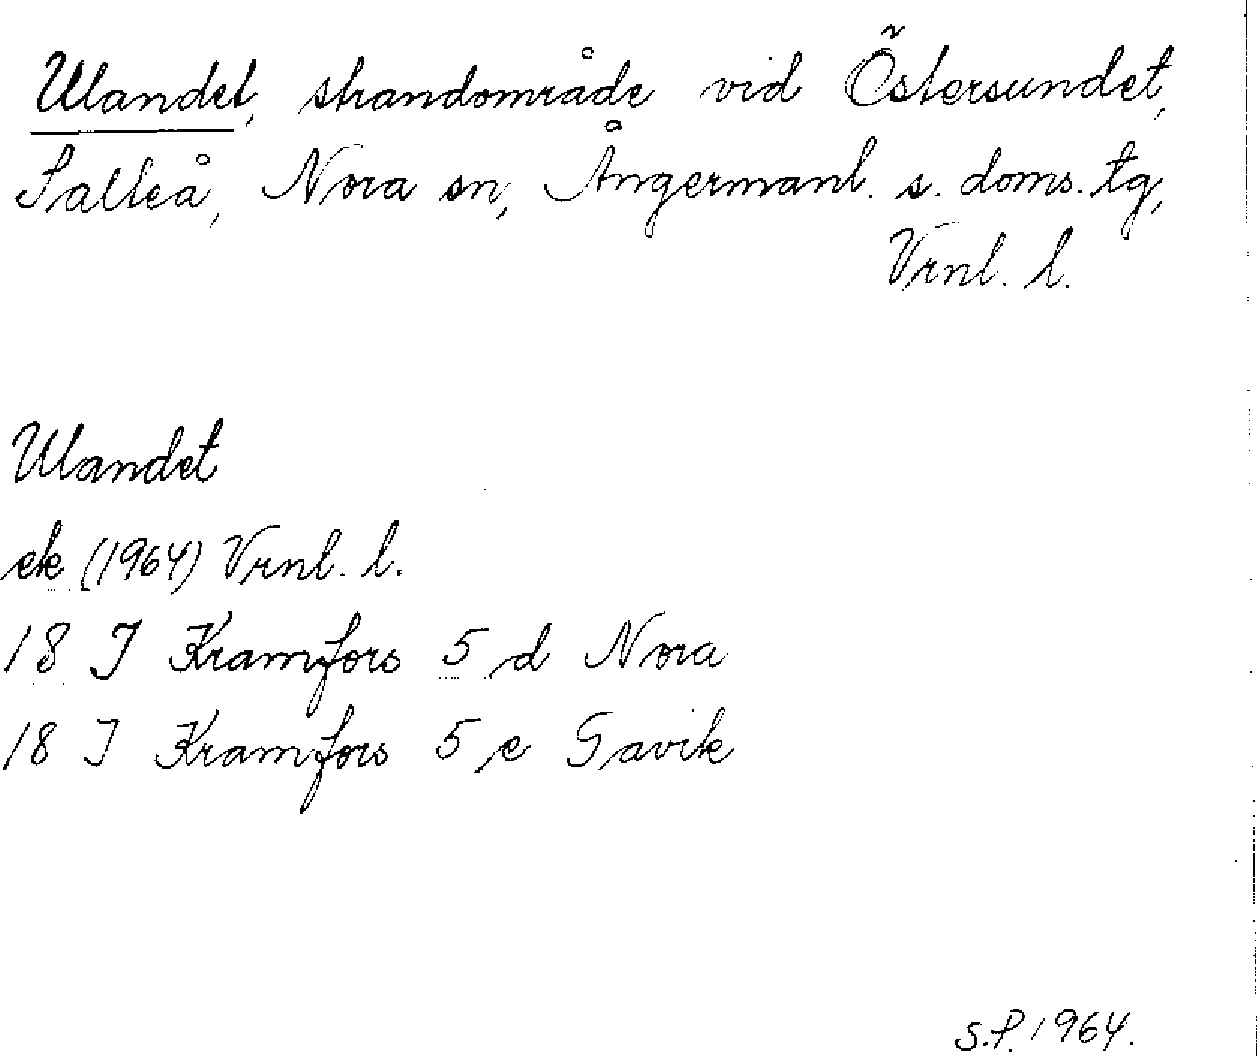 Ulandet, strandområde vid Östersundet,
Salteå, Nora sn, Ångermanl. s. doms. tg,
Vrnl. l.
Ulandet
ek (1964) Vrnl. l.
18 I Kramfors 5 d Nora
18 I Kramfors 5 e Gavik
S.P. 1964.